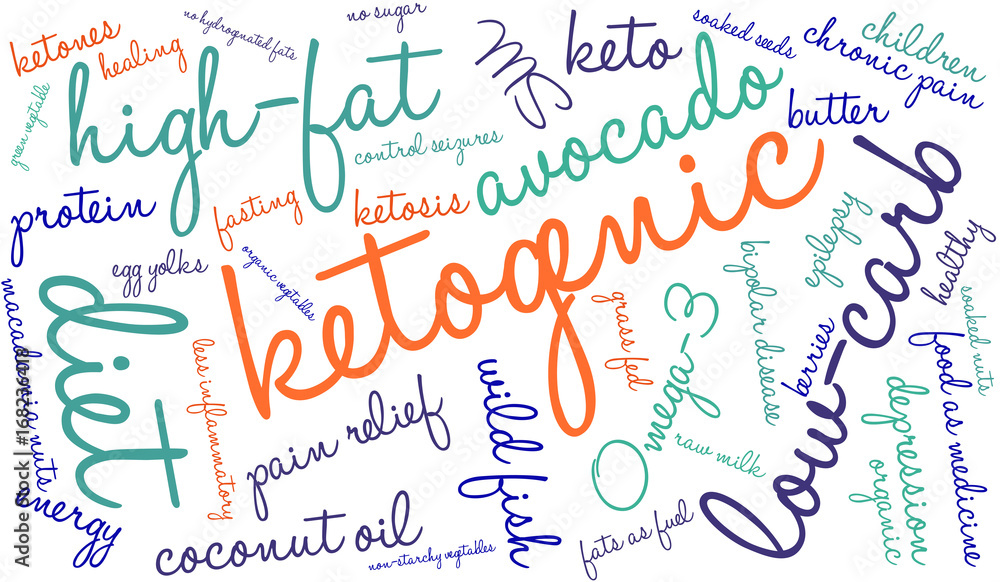 no sugar
no hydrognated fats
ketones
healing
high-fat
green vegtable
control seizures
MS
keto
soaked seeds
children
chronic pain
butter
avocado
protein
fasting
ketosis
ketogenic
egg yolks
organic vegetables
diet
macadamia nuts
energy
less inflammatory
pain relief
coconut oil
non-starchy vegtables
wild fish
grass fed
Omega-3
raw milk
fats as fuel
bipolar disease
epilepsy
berries
low-carb
healthy
soaked nuts
food as medicine
depression
organic
Adobe Stock | #168236418